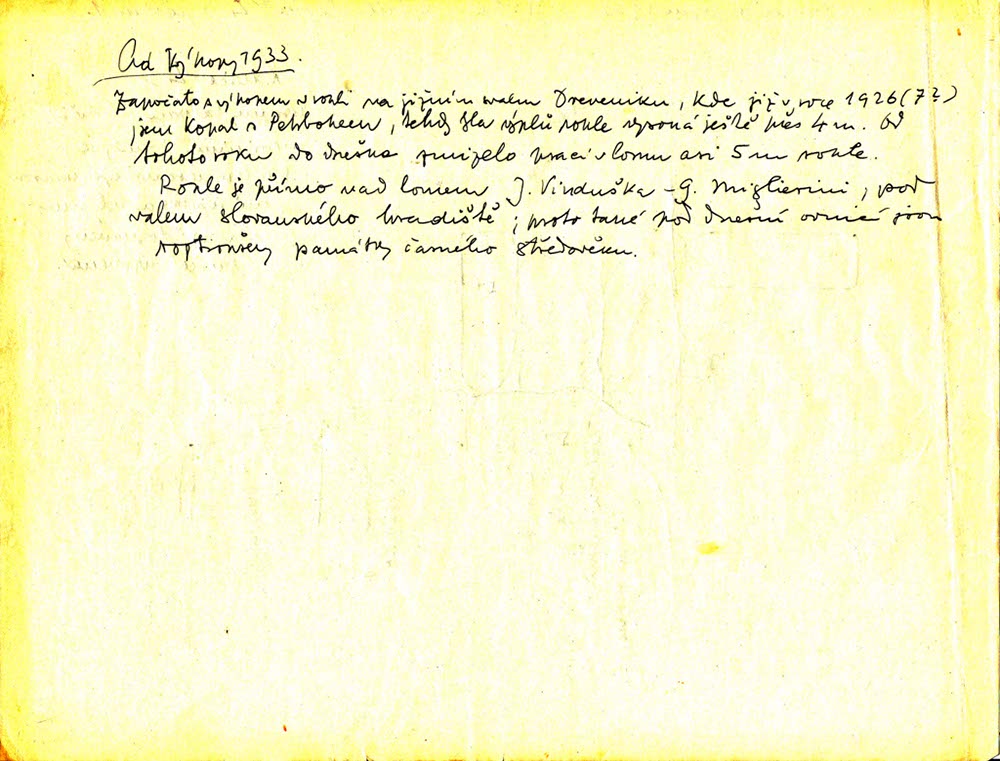 Ad Výkopy 1933.
Započato s výkopem v rokli na jižním svahu Dreveníku, kde již v roce 1926 (7?)
jsem kopal s Petrbokem, tehdy šla výplň rokle vysoká ještě přes 4 m. Od
tohoto roku do dneška zmizelo prací v lomu asi 5 m rokle.
Rokle je přímo nad lomem J. Vinduška – G. Miglierini, pod
valem slovanského hradiště; proto také pod dnešní ornicí jsou
roztroušeny památky časného středověku.